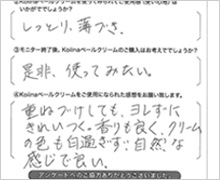 いかがでしょうか？
しっとり、薄づき。
③モニター終了後、Kolinaベールクリームのご購入はお考えでしょうか？
是非、使ってみたい。
④Kolinaベールクリームをご使用になられた感想をお願い致します。
重ねづけしても、ヨレずに
きれいつく。香りも良く、クリーム
の色も白過ぎず、自然な
感じで良い。
アンケートへのご協力ありがとうございました。